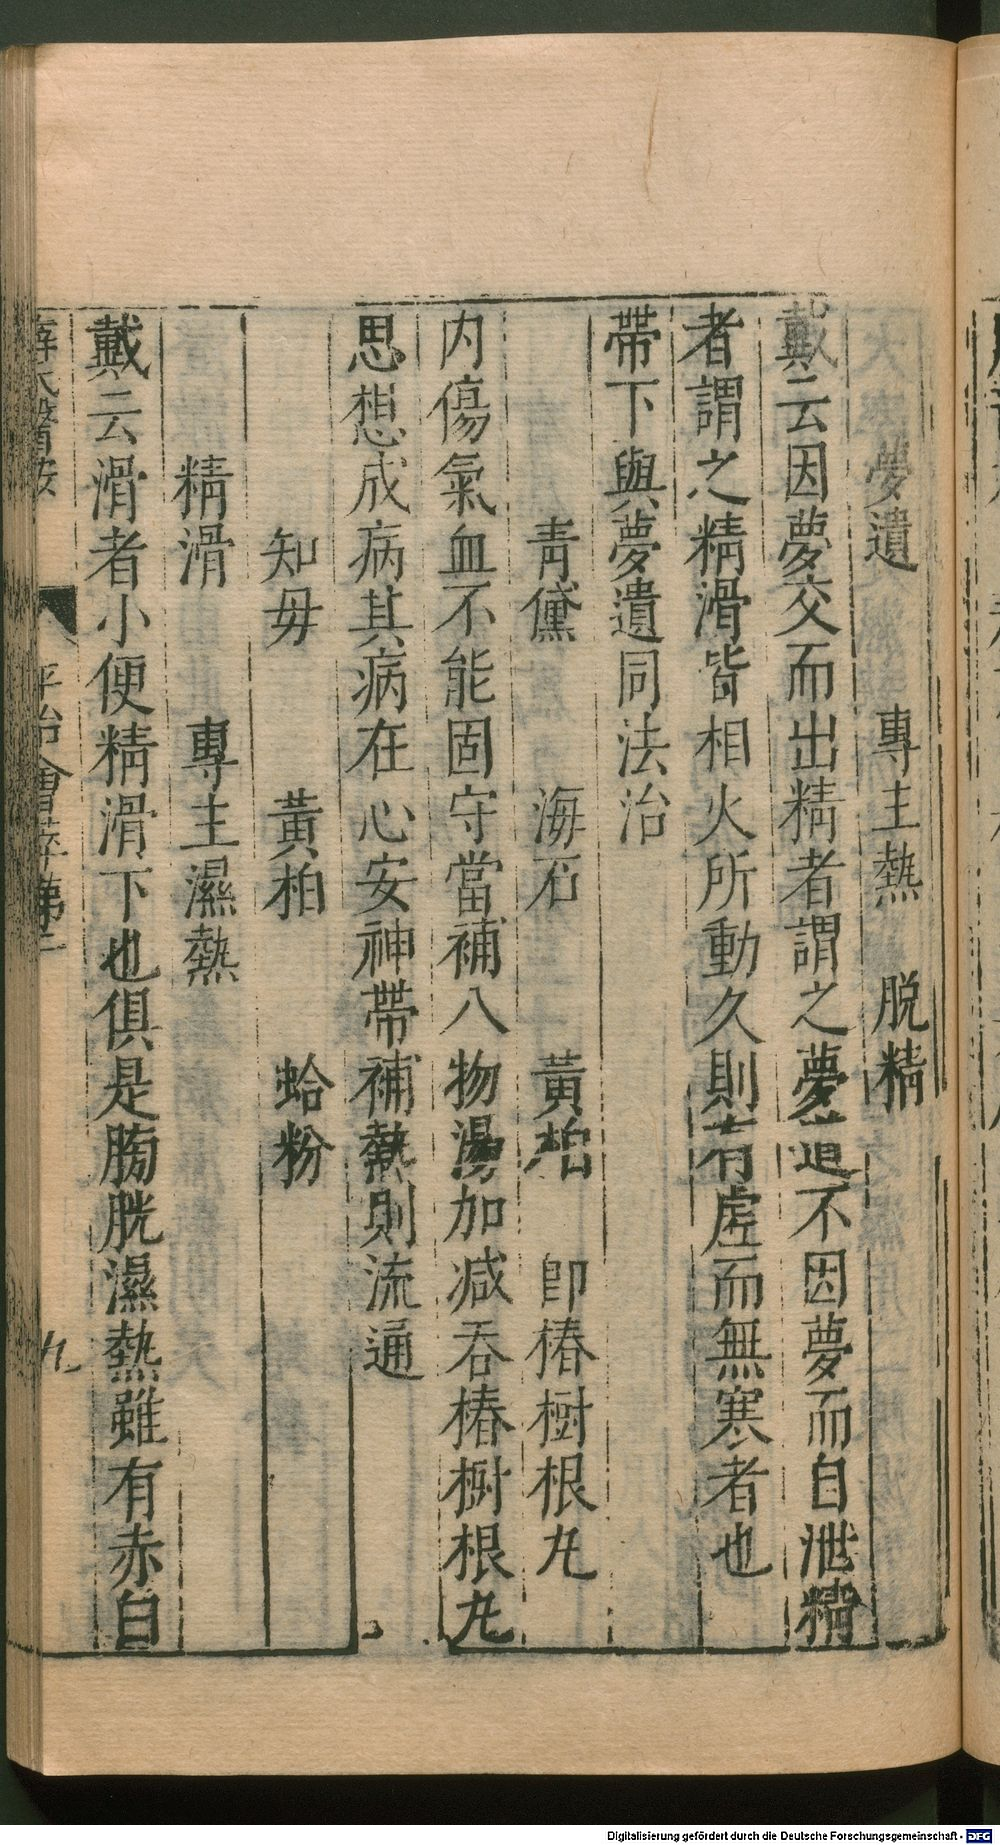 夢遺　專主熱　脫精
戴云因夢交而出精者謂之夢遺不因夢而自泄精
者謂之精滑皆相火所動久則有虛而無寒者也
帶下與夢遺同法治
青黛　海石　黃栢　即椿樹根丸
内傷氣血不能固守當補八物湯加减吞椿樹根丸
思想成病其病在心安神帶補熱則流通
知母　黃栢　蛤粉
精滑　專主濕熱
戴云滑者小便精滑下也俱是膀胱濕熱雖有赤白
薛氏醫按　平治會萃第二　九
Digitalisierung gefördert durch die Deutsche Forschungsgemeinschaft - DFG